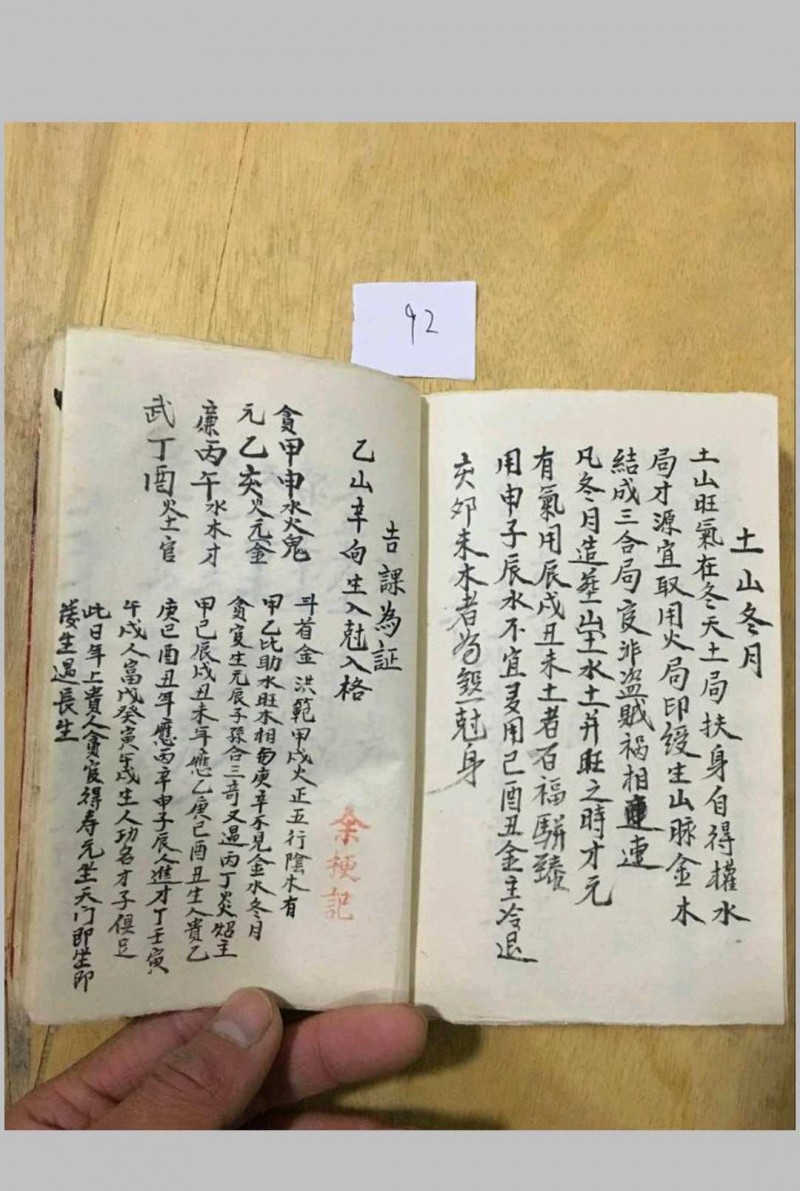 92
土山冬月
土山旺氣在冬天土局扶身自得權水
局才源宜取用火局印綬生山脈金木
結成三合局官非盜賊禍相連連
凡冬月造葬山土水土并旺之時才元
有氣用辰戌丑未土者百福駢臻
用申子辰水不宜更用巳酉丑金主冷退
亥卯未木者為鬼尅身
吉課為証
乙山辛向生入尅入格
貪甲申水火鬼
元乙亥火元金
廉丙午水木才
武丁酉火土官
斗首金洪範甲戌火正五行陰木有
甲乙比助水旺木相匆庚辛不見金水冬月
貪官生元辰子孫合三奇又遇丙丁炎炤主
甲己辰戌丑未年應乙庚巳酉丑生人貴乙
庚巳酉丑年應丙辛申子辰人進才丁壬寅
午戌人富戊癸寅午戌生人功名才子俱足
此日年上貴人貪官得寿元坐天门即坐即
後生遇長生
余梗記